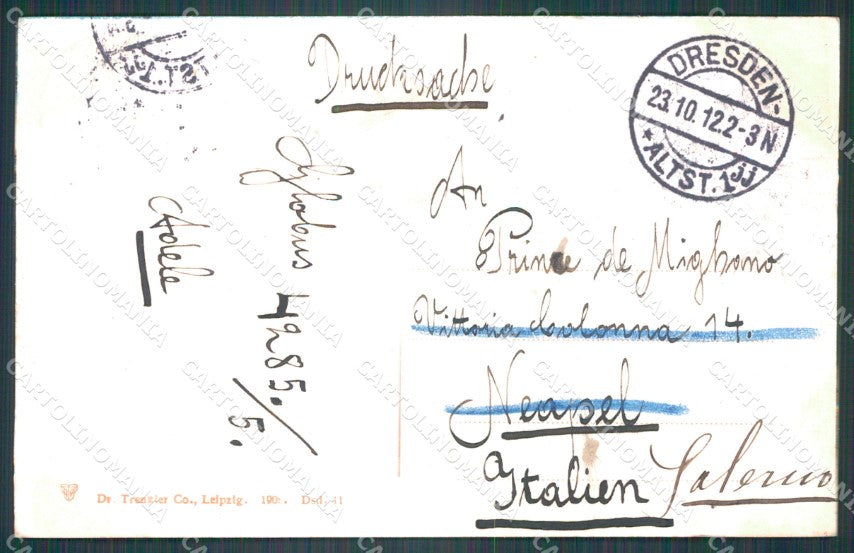 Drucksache
DRESDEN-
23.10.12.2-3N
* ALTST. 1 jj
An
Prince de Migliano
Vittoria Colonna 14.
Neapel
Italien
Salerno
Globus 4285./5.
Adele
Dr. Trenkler Co., Leipzig. 190 . Dsd, 41
CARTOLINOMANIA